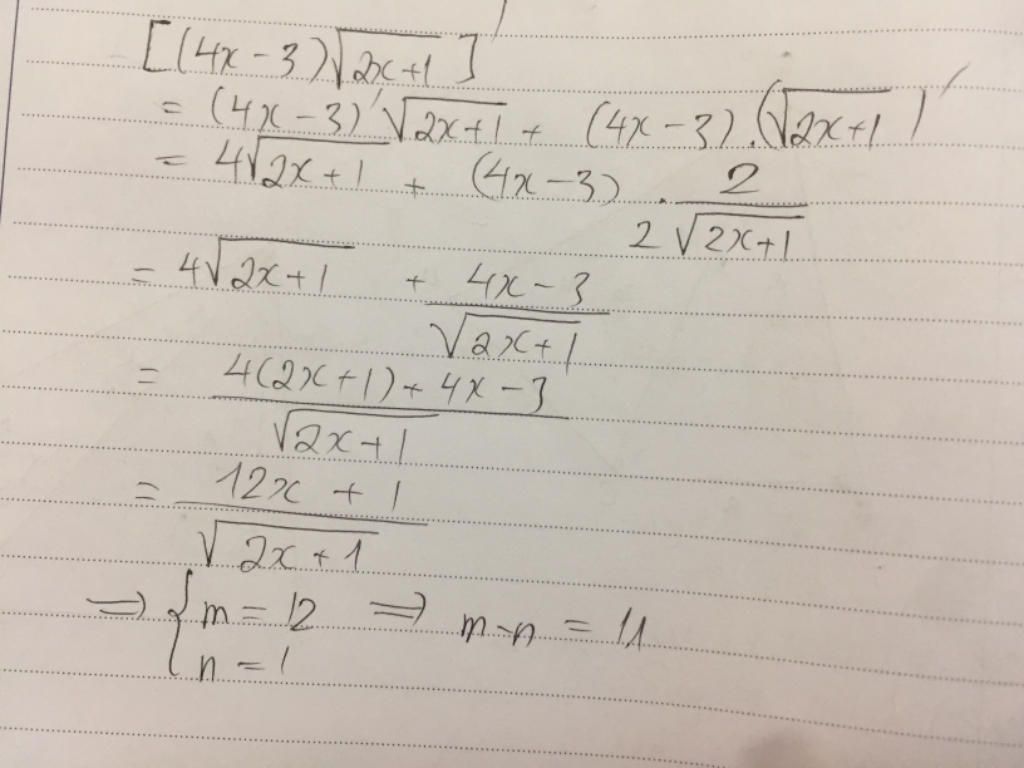 [(4x - 3)√(2x+1)]'
= (4x - 3)'√(2x+1) + (4x - 3).(√(2x+1))'
= 4√(2x+1) + (4x - 3) . 2/(2√(2x+1))
= 4√(2x+1) + (4x - 3)/√(2x+1)
= (4(2x+1) + 4x - 3)/√(2x+1)
= (12x + 1)/√(2x+1)
=> { m = 12 => m-n = 11
n = 1